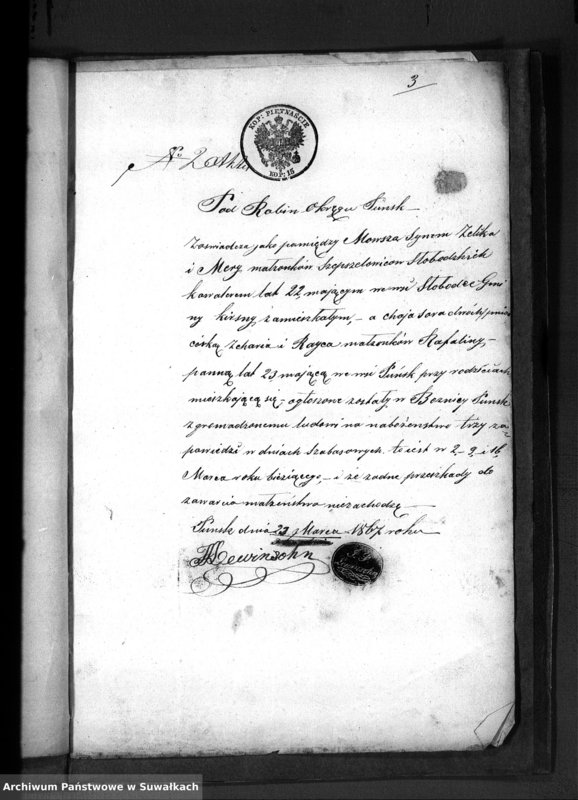 3
KOP: PIĘTNAŚCIE
KOP: 15
No 2 Akt
Pod Rabin Okręgu Puńsk
Zaświadcza jako pomiędzy Mowsza Synem Zelika
i Mery małżonków Szepszelowiców Słobodzkich
kawalerem lat 22 mającym we wsi Słobodce Gmi
ny Kirsny zamieszkałym, - a Chaja Sora dwóch imion
córką Zcharia i Rayca małżonków Rafaliny, -
panną lat 23 mającą we wsi Puńsk przy rodzicach
mieszkającą się - ogłoszone zostały w Boznicy Puńsk
zgromadzonemu ludowi na nabożeństwo trzy za-
powiedzi w dniach Szabasowych to iest w 2 - 9 i 16
Marca roku bieżącego, - i że żadne przeszkody do
zawarcia małżeństwa niezachodzą
Puńsk dnia 23 Marca 1867 roku
Lewinsohn
Archiwum Państwowe w Suwałkach